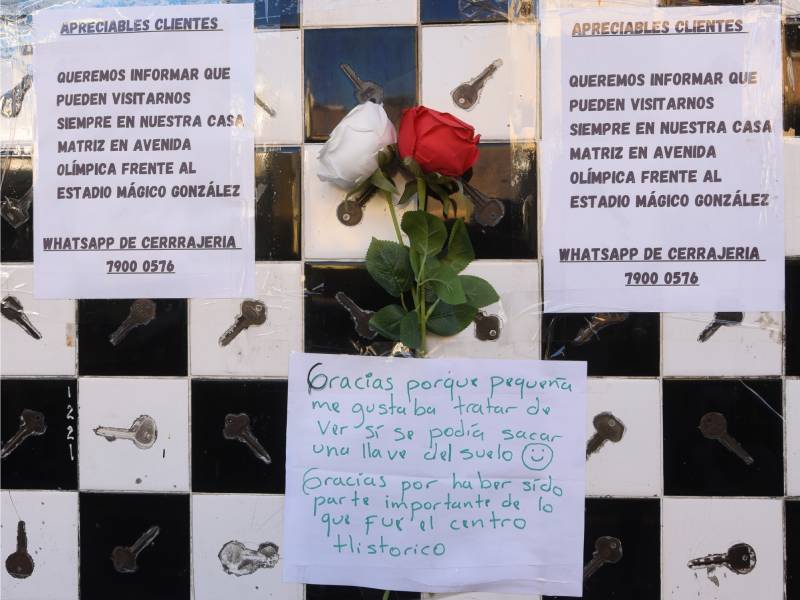 APRECIABLES CLIENTES
QUEREMOS INFORMAR QUE
PUEDEN VISITARNOS
SIEMPRE EN NUESTRA CASA
MATRIZ EN AVENIDA
OLÍMPICA FRENTE AL
ESTADIO MÁGICO GONZÁLEZ
WHATSAPP DE CERRRAJERIA
7900 0576
APRECIABLES CLIENTES
QUEREMOS INFORMAR QUE
PUEDEN VISITARNOS
SIEMPRE EN NUESTRA CASA
MATRIZ EN AVENIDA
OLÍMPICA FRENTE AL
ESTADIO MÁGICO GONZÁLEZ
WHATSAPP DE CERRAJERIA
7900 0576
Gracias porque pequeña
me gustaba tratar de
ver sí se podía sacar
una llave del suelo ☺
Gracias por haber sido
parte importante de lo
que fue el centro
Historico
1221